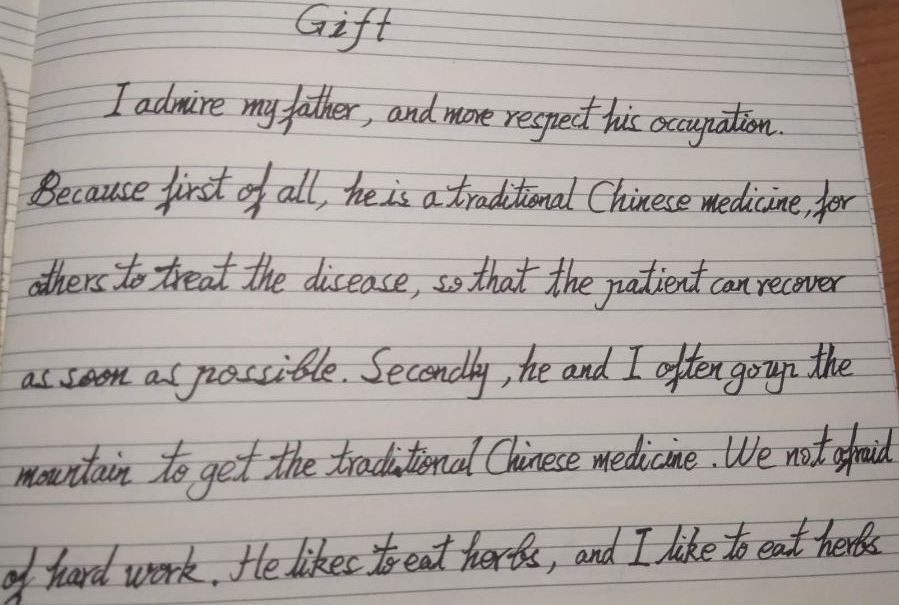 Gift
I admire my father, and more respect his occupation.
Because first of all, he is a traditional Chinese medicine, for
others to treat the disease, so that the patient can recover
as soon as possible. Secondly, he and I often go up the
mountain to get the traditional Chinese medicine. We not afraid
of hard work. He likes to eat herbs, and I like to eat herbs